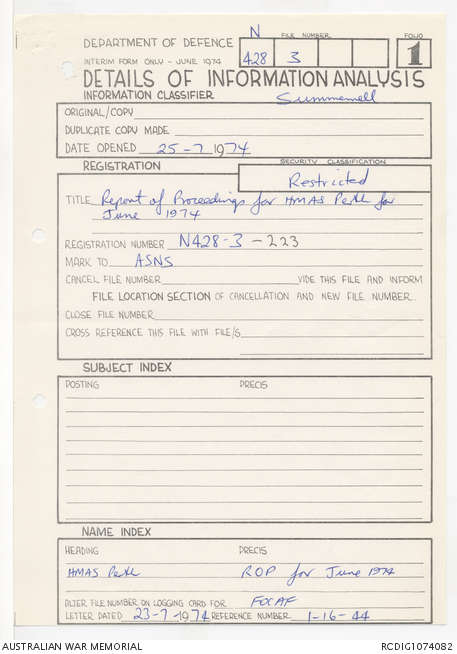 N
DEPARTMENT OF DEFENCE
FILE NUMBER
FOLIO
INTERIM FORM ONLY - JUNE 1974
428 3
1
DETAILS OF INFORMATION ANALYSIS
INFORMATION CLASSIFIER
ORIGINAL/COPY
DUPLICATE COPY MADE
DATE OPENED 25-7-1974
REGISTRATION
SECURITY CLASSIFICATION
Restricted
TITLE Report of Proceedings for HMAS Perth for
June 1974
REGISTRATION NUMBER N428-3-223
MARK TO ASNS
CANCEL FILE NUMBER VIDE THIS FILE AND INFORM
FILE LOCATION SECTION OF CANCELLATION AND NEW FILE NUMBER.
CLOSE FILE NUMBER
CROSS REFERENCE THIS FILE WITH FILE/S
SUBJECT INDEX
POSTING PRECIS
NAME INDEX
HEADING PRECIS
HMAS Perth ROP for June 1974
ALTER FILE NUMBER ON LOGGING CARD FOR FOCAF
LETTER DATED 23-7-1974 REFERENCE NUMBER 1-16-44
AUSTRALIAN WAR MEMORIAL
RCDIG1074082